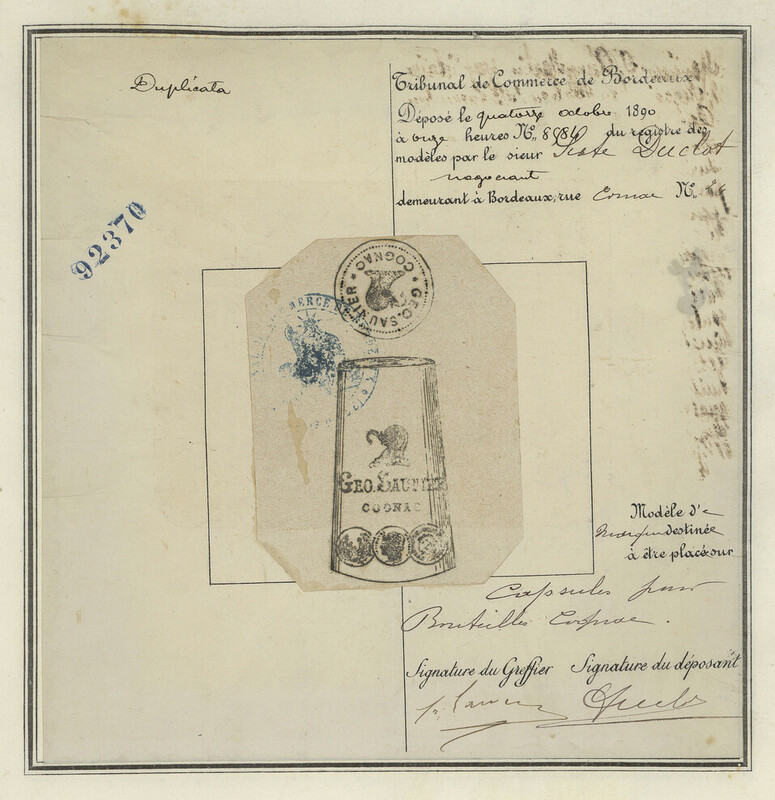 Duplicata
Tribunal de Commerce de Bordeaux
Déposé le quatorze octobre 1890
à onze heures N° du registre des
modèles par le sieur Duclot
négociant
demeurant à Bordeaux, rue N°
92370
GEO. SAUNIER * COGNAC *
GEO. SAUNIER
COGNAC
Modèle d'e
marque destinée
à être placé sur
Capsules pour
Bouteilles Cognac.
Signature du Greffier Signature du déposant